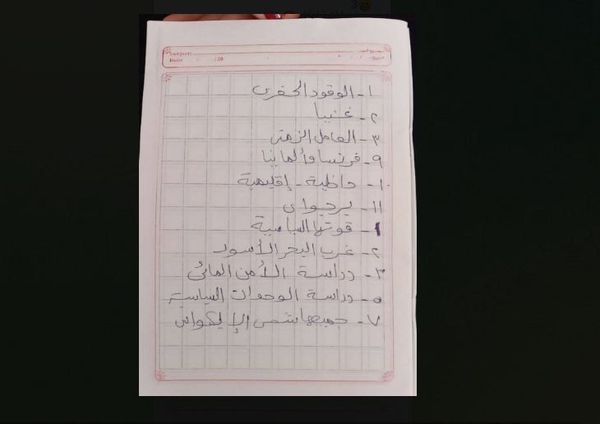 ١- الوقود الحفرى
٢- غنيا
٣- العامل الزمنى
٩- فرنسا وألمانيا
١٠- داخلية - إقليمية
١١-
١- قوتها السياسية
٢- غرب البحر الأسود
٣- دراسة الأمن المائى
٥- دراسة الوحدات السياسية
٧- جميعها